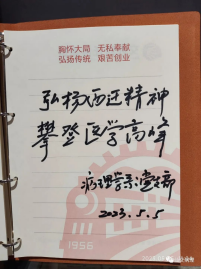 胸怀大局 无私奉献
弘扬传统 艰苦创业
弘扬西迁精神
攀登医学高峰
病理学系党支部
2023.5.5
1956